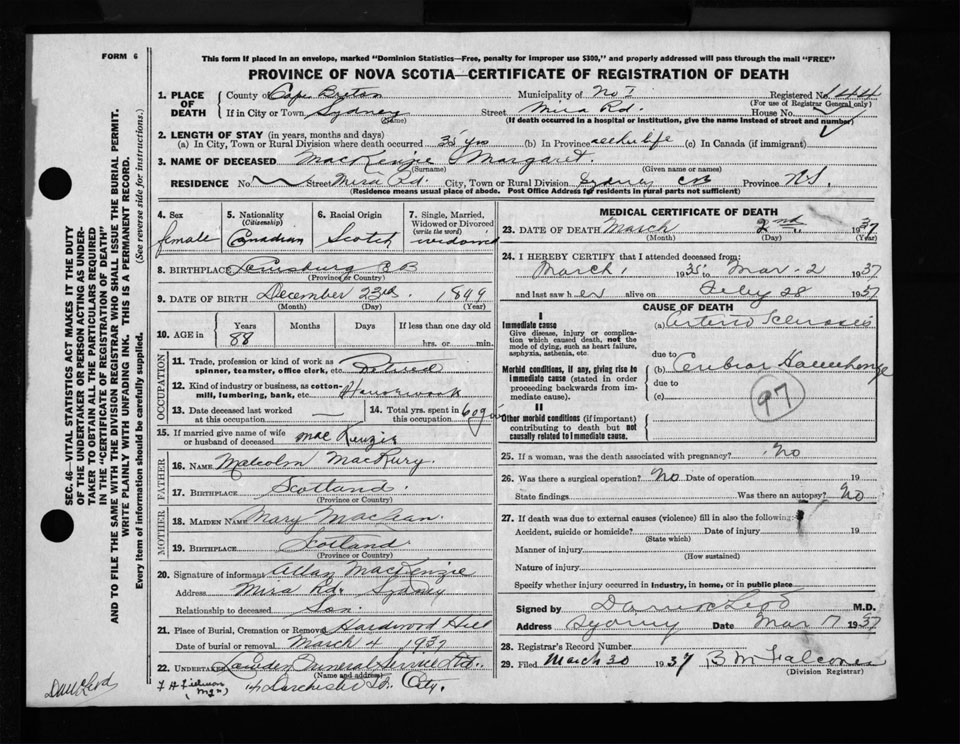 FORM 6
This form if placed in an envelope, marked "Dominion Statistics—Free, penalty for improper use $300," and properly addressed will pass through the mail "FREE"
PROVINCE OF NOVA SCOTIA—CERTIFICATE OF REGISTRATION OF DEATH
1. PLACE OF DEATH County of Cape Breton Municipality of No I Registered No. 144
(For use of Registrar General only)
If in City or Town Sydney Street Mira Rd. House No.
(Name) (If death occurred in a hospital or institution, give the name instead of street and number)
2. LENGTH OF STAY (in years, months and days)
(a) In City, Town or Rural Division where death occurred 35 yrs (b) In Province all her life (c) In Canada (if immigrant)
3. NAME OF DECEASED MacKenzie Margaret.
(Surname) (Given name or names)
RESIDENCE No. Street Mira Rd. City, Town or Rural Division Sydney CB Province N.S.
(Residence means usual place of abode. Post Office Address for residents in rural parts not sufficient)
4. Sex female
5. Nationality (Citizenship) Canadian
6. Racial Origin Scotch
7. Single, Married, Widowed or Divorced (write the word) widowed
8. BIRTHPLACE Louisburg C B
(Province or Country)
9. DATE OF BIRTH December 23rd. 1849
(Month) (Day) (Year)
10. AGE in Years 88 Months Days If less than one day old
hrs. or min.
OCCUPATION
11. Trade, profession or kind of work as spinner, teamster, office clerk, etc. Retired
12. Kind of industry or business, as cotton-mill, lumbering, bank, etc. Housework
13. Date deceased last worked at this occupation
14. Total yrs. spent in this occupation 60
15. If married give name of wife or husband of deceased MacKenzie
FATHER
16. NAME Malcolm MacRury.
17. BIRTHPLACE Scotland.
(Province or Country)
MOTHER
18. MAIDEN NAME Mary MacLean.
19. BIRTHPLACE Scotland
(Province or Country)
20. Signature of informant Allan MacKenzie
Address Mira Rd. Sydney
Relationship to deceased Son.
21. Place of Burial, Cremation or Removal Hardwood Hill
Date of burial or removal March 4 1937
22. UNDERTAKER Funeral Service Ltd.
(Name and address)
(Mgr) Dorchester St. City.
MEDICAL CERTIFICATE OF DEATH
23. DATE OF DEATH March 2nd 1937
(Month) (Day) (Year)
24. I HEREBY CERTIFY that I attended deceased from:
March 1 1935 to Mar. 2 1937
and last saw her alive on Feby 28 1937
CAUSE OF DEATH
I
Immediate cause
Give disease, injury or complication which caused death, not the mode of dying, such as heart failure, asphyxia, asthenia, etc.
(a) Arterio Sclerosis
due to
Morbid conditions, if any, giving rise to immediate cause (stated in order proceeding backwards from immediate cause).
(b)
due to
(c)
97
II
Other morbid conditions (if important) contributing to death but not causally related to immediate cause.
25. If a woman, was the death associated with pregnancy? No
26. Was there a surgical operation? No Date of operation 19
State findings Was there an autopsy? No
27. If death was due to external causes (violence) fill in also the following:
Accident, suicide or homicide? Date of injury 19
(State which)
Manner of injury
(How sustained)
Nature of injury
Specify whether injury occurred in industry, in home, or in public place
Signed by Dan McLeod M.D.
Address Sydney Date Mar 7 1937
28. Registrar's Record Number
29. Filed March 30 1937 B M Falconer
(Division Registrar)
SEC. 46—VITAL STATISTICS ACT MAKES IT THE DUTY
OF THE UNDERTAKER OR PERSON ACTING AS UNDER-
TAKER TO OBTAIN ALL THE PARTICULARS REQUIRED
IN THE "CERTIFICATE OF REGISTRATION OF DEATH"
AND TO FILE THE SAME WITH THE DIVISION REGISTRAR WHO SHALL ISSUE THE BURIAL PERMIT.
WRITE PLAINLY WITH UNFADING INK. THIS IS A PERMANENT RECORD.
Every item of information should be carefully supplied. (See reverse side for instructions.)
Dan McLeod